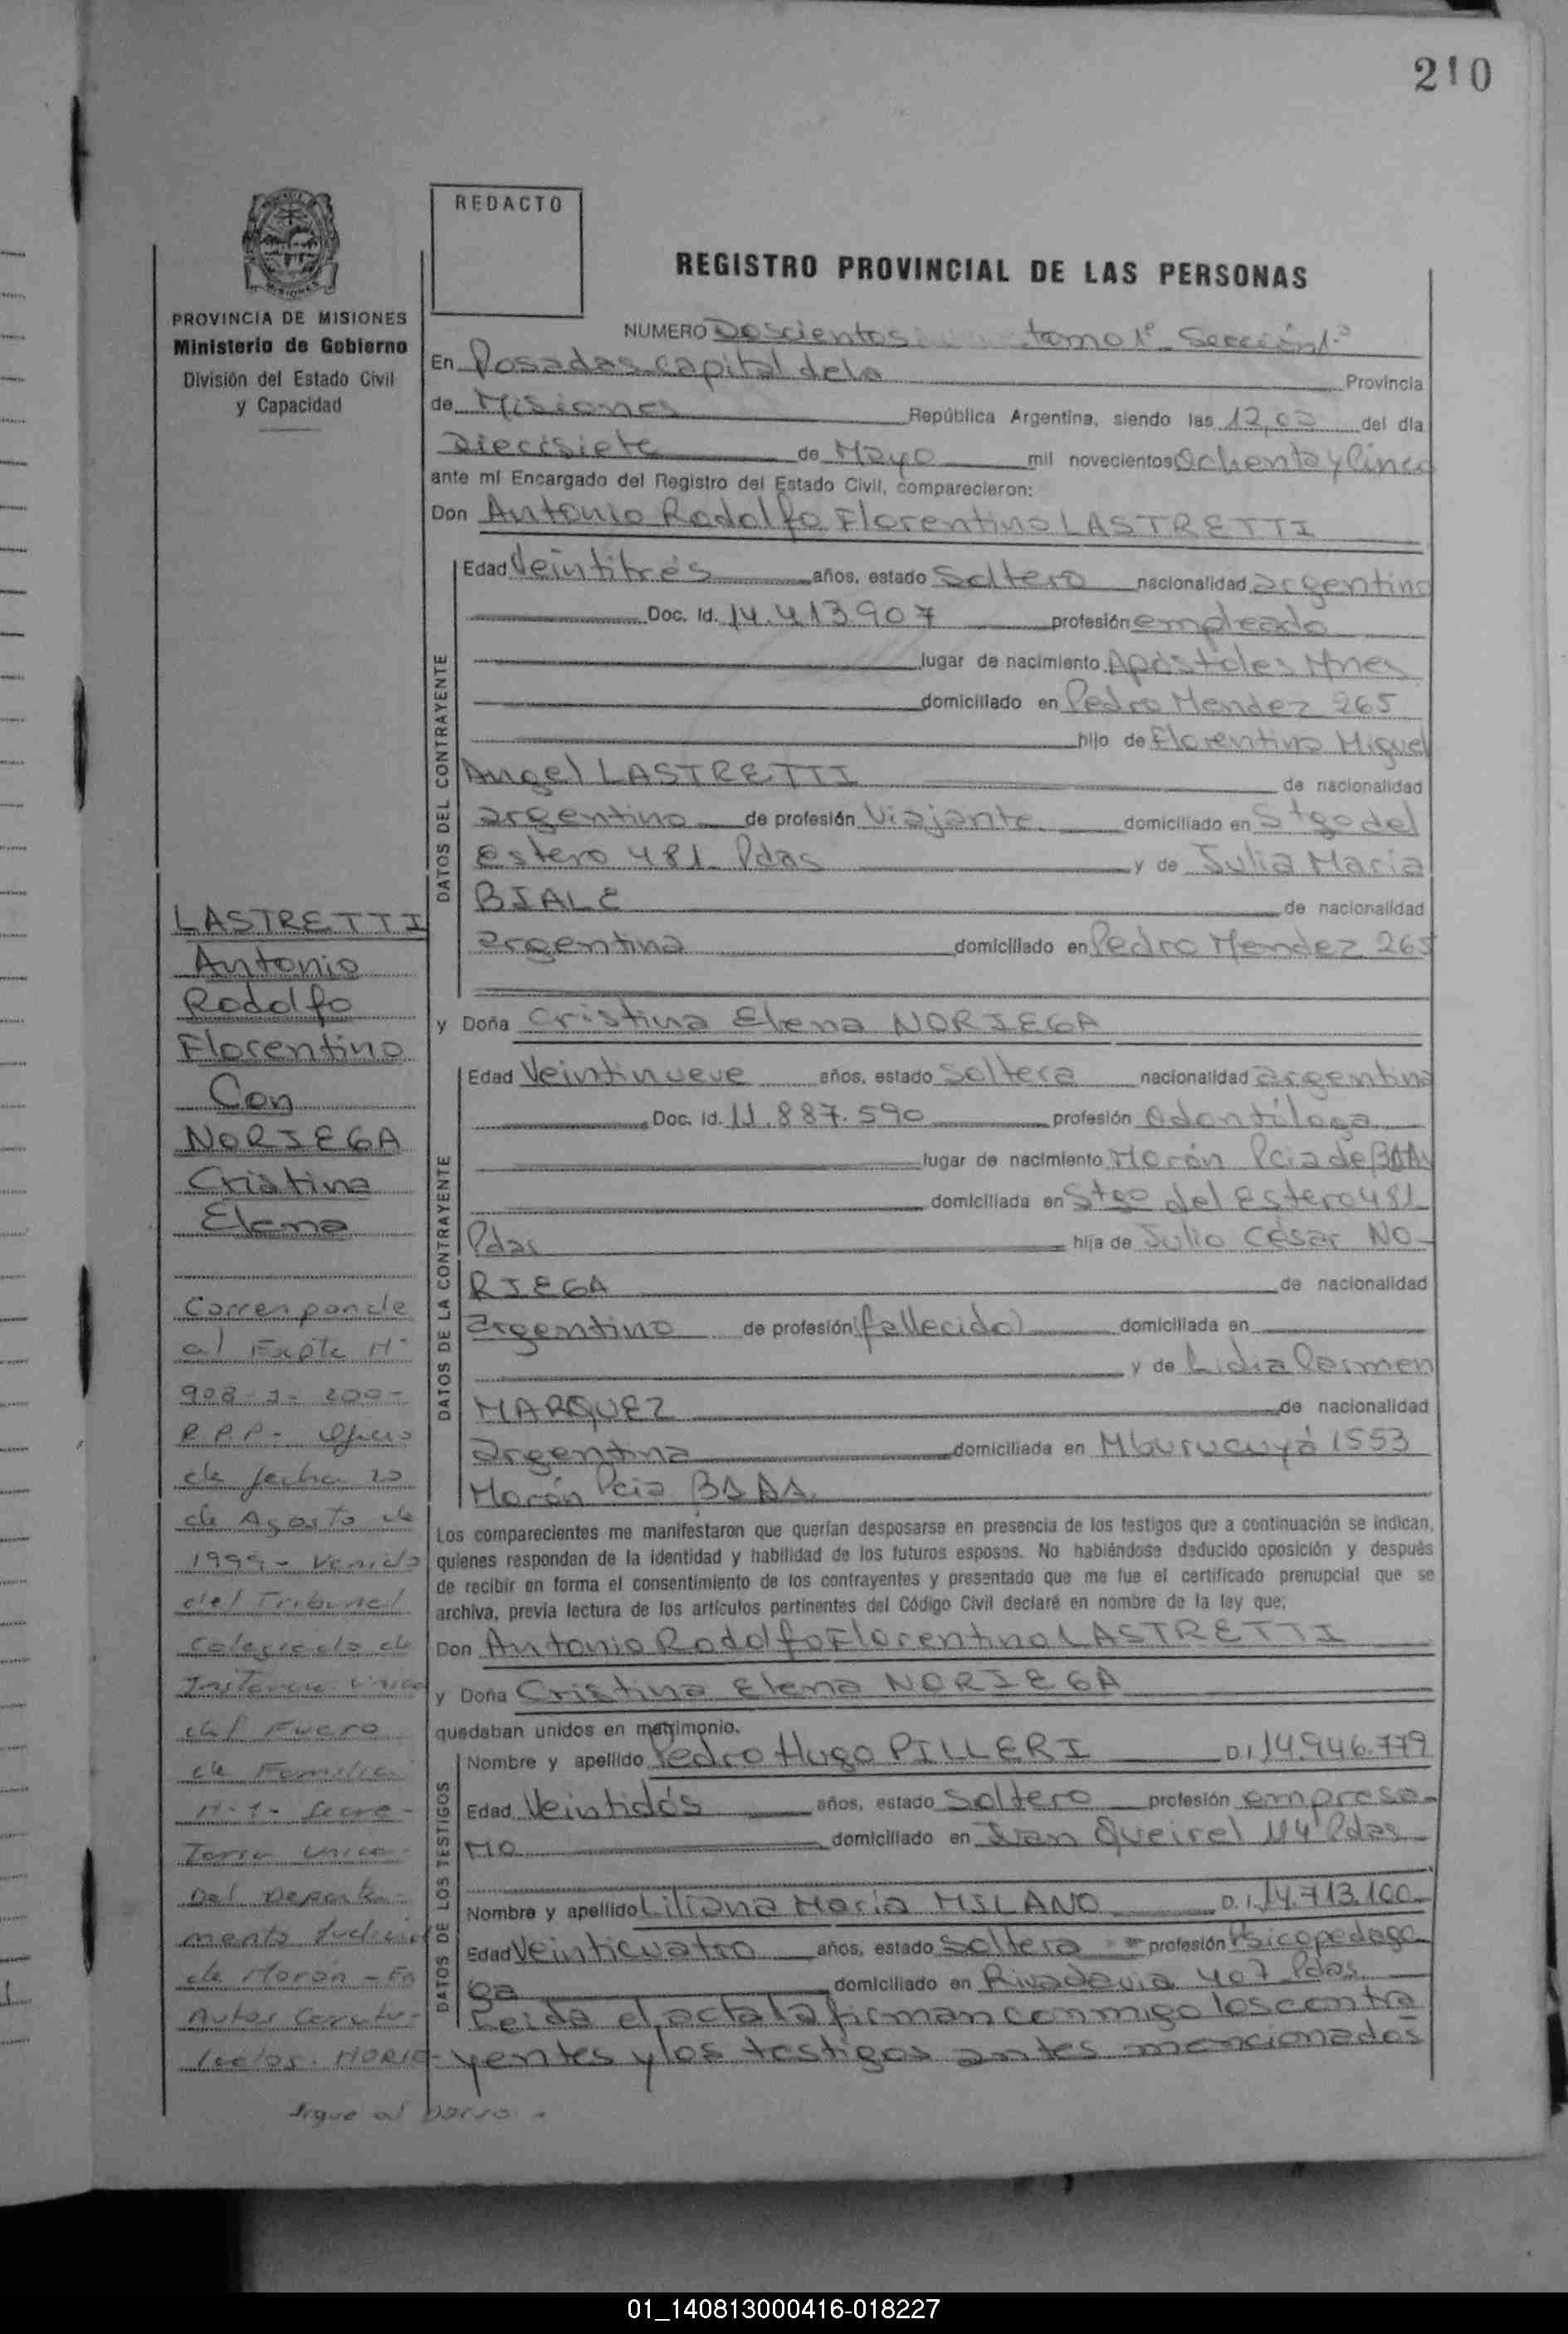 210
REDACTO
REGISTRO PROVINCIAL DE LAS PERSONAS
PROVINCIA DE MISIONES
Ministerio de Gobierno
División del Estado Civil
y Capacidad
NUMERO Doscientos tomo 1º Sección 1ª
En Posadas capital de la Provincia
de Misiones República Argentina, siendo las 12,00 del día
Diecisiete de Mayo mil novecientos Ochenta y Cinco
ante mí Encargado del Registro del Estado Civil, comparecieron:
Don Antonio Rodolfo Florentino LASTRETTI
DATOS DEL CONTRAYENTE
Edad Veintitrés años, estado Soltero nacionalidad argentino
Doc. Id. 14.413907 profesión empleado
lugar de nacimiento Apóstoles Mnes
domiciliado en Pedro Mendez 265
hijo de Florentino Miguel
Angel LASTRETTI de nacionalidad
argentino de profesión Viajante domiciliado en Stgo del
Estero 481 Pdas y de Julia María
BIALE de nacionalidad
argentina domiciliado en Pedro Mendez 265
y Doña Cristina Elena NORIEGA
DATOS DE LA CONTRAYENTE
Edad Veintinueve años, estado Soltera nacionalidad argentina
Doc. Id. 11.887.590 profesión Odontóloga
lugar de nacimiento Morón Pcia de BsAs
domiciliada en Stgo del Estero 481
Pdas hija de Julio César NO-
RIEGA de nacionalidad
argentino de profesión (fallecido) domiciliada en
y de Lidia Carmen
MARQUEZ de nacionalidad
argentina domiciliada en Mburucuyá 1553
Morón Pcia BsAs.
Los comparecientes me manifestaron que querían desposarse en presencia de los testigos que a continuación se indican,
quienes responden de la identidad y habilidad de los futuros esposos. No habiéndose deducido oposición y después
de recibir en forma el consentimiento de los contrayentes y presentado que me fue el certificado prenupcial que se
archiva, previa lectura de los artículos pertinentes del Código Civil declaré en nombre de la ley que;
Don Antonio Rodolfo Florentino LASTRETTI
y Doña Cristina Elena NORIEGA
quedaban unidos en matrimonio.
DATOS DE LOS TESTIGOS
Nombre y apellido Pedro Hugo PILLERI D.I. 14.946.779
Edad Veintidós años, estado Soltero profesión empresa-
rio domiciliado en Juan Queirel 114 Pdas
Nombre y apellido Liliana María MILANO D.I. 14.713.100
Edad Veinticuatro años, estado Soltera profesión Psicopedago
ga domiciliado en Rivadavia 407 Pdas
Leída el acta la firman conmigo los contra
yentes y los testigos antes mencionados
LASTRETTI
Antonio
Rodolfo
Florentino
Con
NORIEGA
Cristina
Elena
Corresponde
al Expte Nº
908-2-200-
R.P.P.- Oficio
de fecha 20
de Agosto de
1999- venido
del Tribunal
Colegiado de
Instancia Unica
del Fuero
de Familia
Nº-1- Secre-
taria Unica-
Del Departa-
mento Judicial
de Morón - En
Autos
NORIE-
Sigue al dorso.
01_140813000416-018227